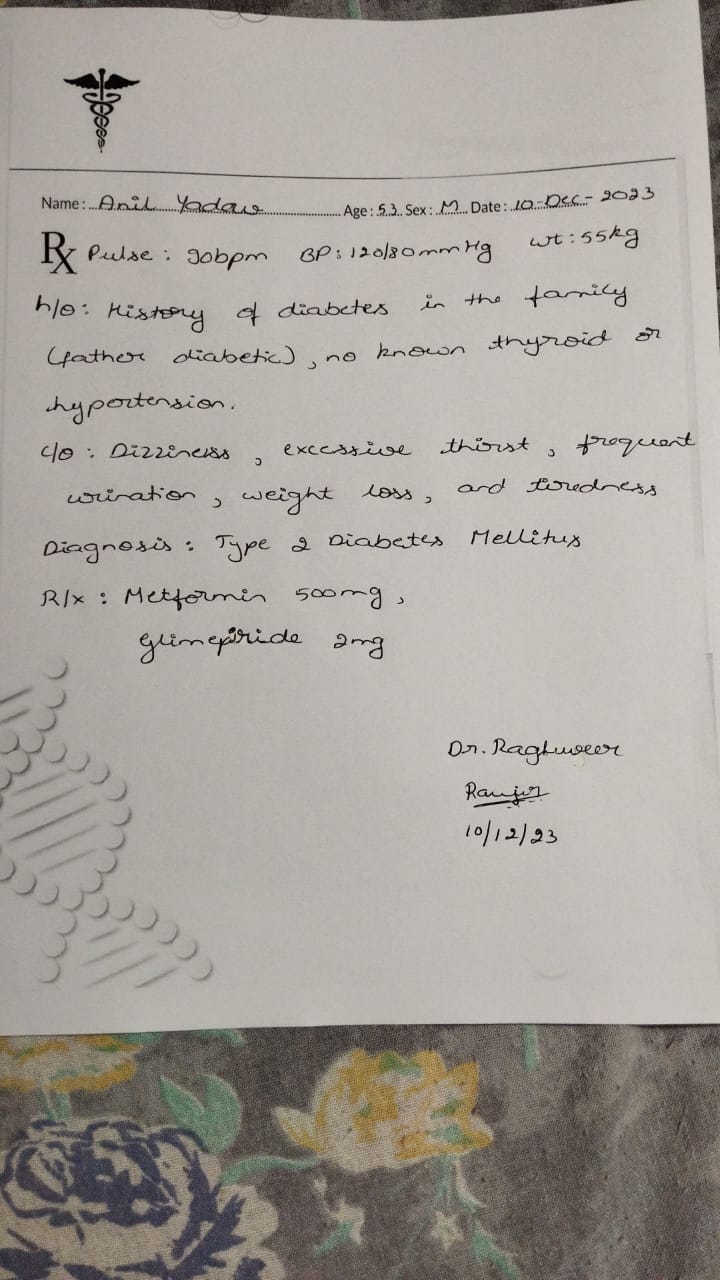 Name: Anil Yadav Age: 53 Sex: M Date: 10-Dec-2023
Rx Pulse: 90bpm BP: 120/80mmHg wt: 55kg
h/o: History of diabetes in the family
(father diabetic), no known thyroid or
hypertension.
c/o: Dizziness, excessive thirst, frequent
urination, weight loss, and tiredness
Diagnosis: Type 2 Diabetes Mellitus
R/x: Metformin 500mg,
Glimepiride 2mg
Dr. Raghuveer
10/12/23